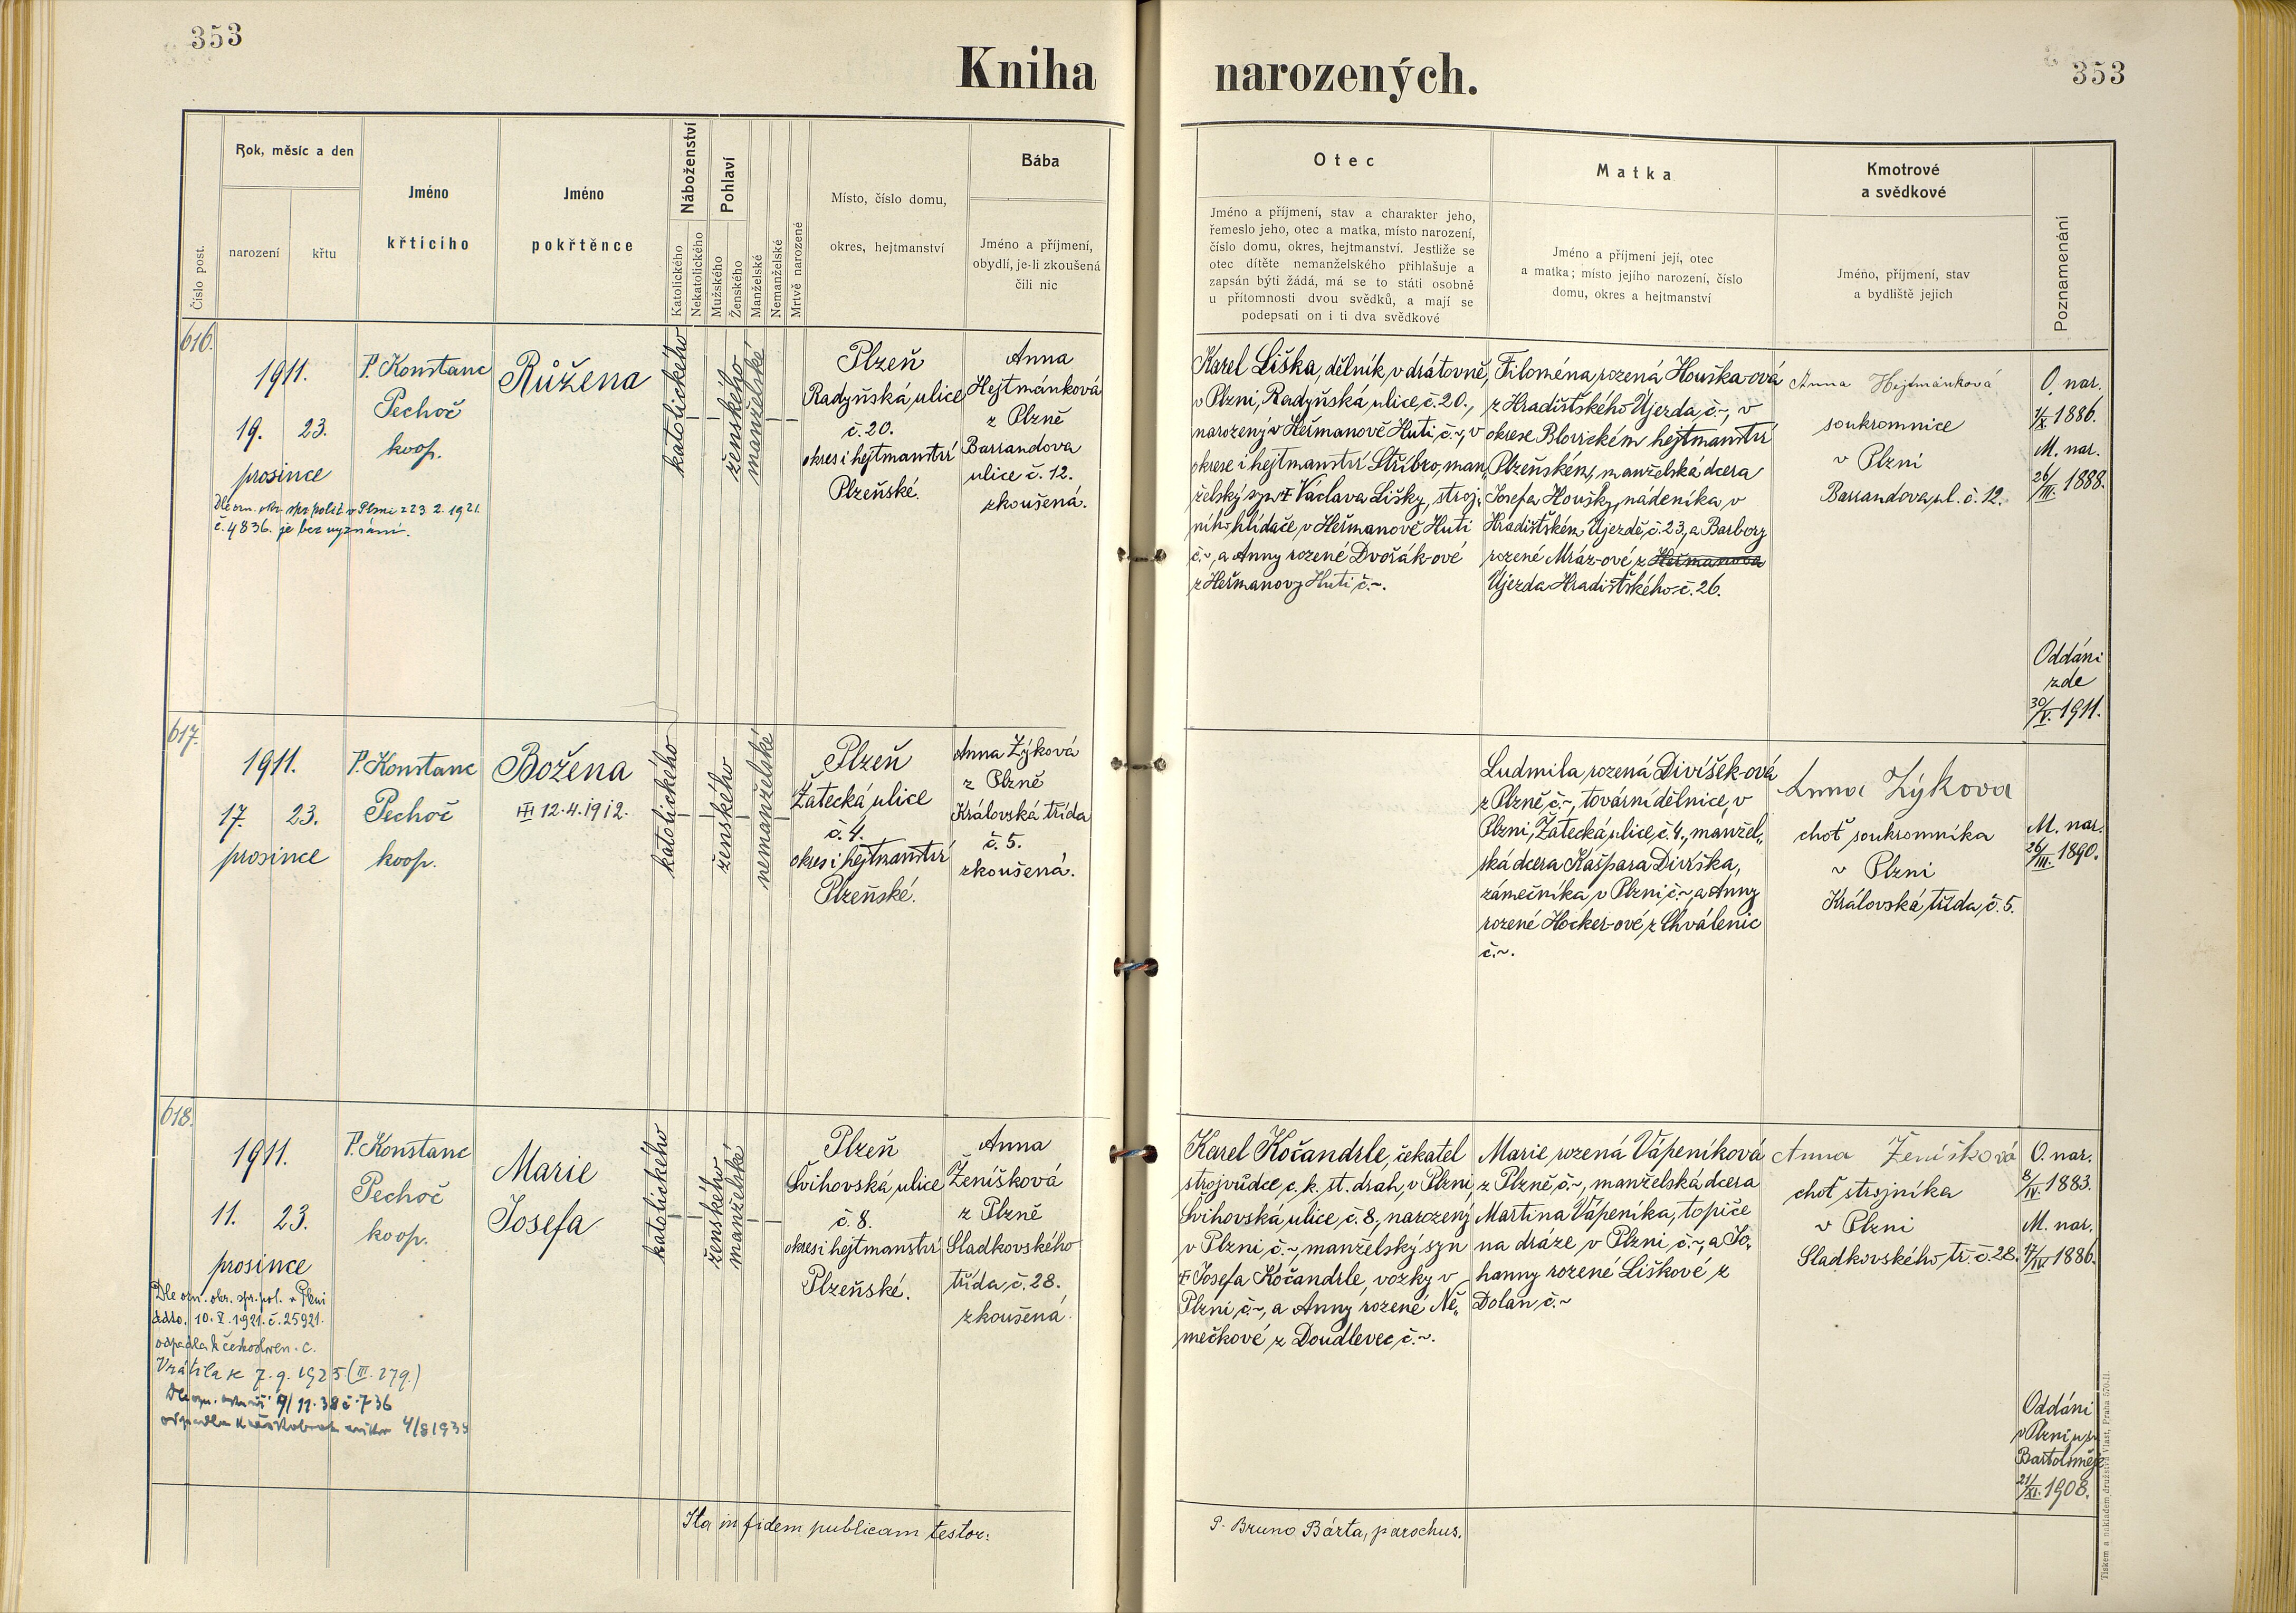 353
Kniha narozených.
353
Číslo post.
Rok, měsíc a den
narození
křtu
Jméno
křticího
Jméno
pokřtěnce
Náboženství
Katolického
Nekatolického
Pohlaví
Mužského
Ženského
Manželské
Nemanželské
Mrtvě narozené
Místo, číslo domu,
okres, hejtmanství
Bába
Jméno a příjmení,
obydlí, je-li zkoušená
čili nic
Otec
Jméno a příjmení, stav a charakter jeho,
řemeslo jeho, otec a matka, místo narození,
číslo domu, okres, hejtmanství. Jestliže se
otec dítěte nemanželského přihlašuje a
zapsán býti žádá, má se to státi osobně
u přítomnosti dvou svědků, a mají se
podepsati on i ti dva svědkové
Matka
Jméno a příjmení její, otec
a matka; místo jejího narození, číslo
domu, okres a hejtmanství
Kmotrové
a svědkové
Jméno, příjmení, stav
a bydliště jejich
Poznamenání
616.
1911.
19. 23.
prosince
Dle ozn. okr. spr. polit. v Plzni z 23. 2. 1921.
č. 4836. je bez vyznání.
P. Konstanc
Pechoč
koop.
Růžena
katolického
ženského
manželské
Plzeň
Radyňská ulice
č. 20.
okres i hejtmanství
Plzeňské.
Anna
Hejtmánková
z Plzně
Barrandova
ulice č. 12.
zkoušená.
Karel Liška, dělník v drátovně,
v Plzni, Radyňská ulice, č. 20.,
narozený v Heřmanově Huti, č. ~, v
okrese i hejtmanství Stříbro, man„
želský syn ‡ Václava Lišky, stroj„
ního hlídače v Heřmanově Huti
č. ~, a Anny rozené Dvořák-ové
z Heřmanovy Huti č. ~.
Filoména, rozená Houška-ová
z Hradišťského Újezda č. ~, v
okrese Blovickém hejtmanství
Plzeňském, manželská dcera
Josefa Houšky, nádeníka v
Hradišťském Újezdě, č. 23, a Barbory
rozené Mráz-ové z Heřmanova
Újezda Hradišťského č. 26.
Anna Hejtmánková
soukromnice
v Plzni
Barrandova ul. č. 12.
O. nar.
1/X. 1886.
M. nar.
26/III. 1888.
Oddáni
zde
30/V. 1911.
617.
1911.
17. 23.
prosince
P. Konstanc
Pechoč
koop.
Božena
12. 4. 1912.
katolického
ženského
nemanželské
Plzeň
Žatecká ulice
č. 4.
okres i hejtmanství
Plzeňské.
Anna Zýková
z Plzně
Královská třída
č. 5.
zkoušená.
Ludmila rozená Divíšek-ová
z Plzně, č. ~, tovární dělnice, v
Plzni, Žatecká ulice, č. 4., manžel„
ská dcera Kašpara Divíška,
zámečníka v Plzni č. ~, a Anny
rozené Hocker-ové z Chválenic
č. ~.
Anna Zýkova
choť soukromníka
v Plzni
Královská třída, č. 5.
M. nar.
26/III. 1890.
618.
1911.
11. 23.
prosince
Dle ozn. okr. spr. pol. v Plzni
ddto. 10. X. 1921. č. 25921.
odpadla k českoslven. c.
Vrátila se 7. 9. 1925 (III. 279.)
9/11. 38 č. 736
odpadla k 4/8 1938
P. Konstanc
Pechoč
koop.
Marie
Josefa
katolického
ženského
manželské
Plzeň
Švihovská ulice
č. 8.
okres i hejtmanství
Plzeňské.
Anna
Ženíšková
z Plzně
Sladkovského
třída č. 28.
zkoušená.
Karel Kočandrle, čekatel
strojvůdce c. k. st. drah, v Plzni,
Švihovská ulice, č. 8., narozený
v Plzni č. ~, manželský syn
‡ Josefa Kočandrle, vozky v
Plzni, č. ~, a Anny rozené Ně„
mečkové z Doudlevec, č. ~.
Marie rozená Vápeníková
z Plzně, č. ~, manželská dcera
Martina Vápeníka, topiče
na dráze v Plzni č. ~, a Jo„
hanny rozené Liškové z
Dolan, č. ~
Anna Ženíšková
choť strojníka
v Plzni
Sladkovského tř. č. 28.
O. nar.
8/IV. 1883.
M. nar.
17/IX 1886.
Oddáni
v Plzni u sv.
Bartoloměje
21/XI. 1908.
Ita in fidem publicam testor:
P. Bruno Bárta, parochus.
Tiskem a nákladem družstva Vlast, Praha 570-II.